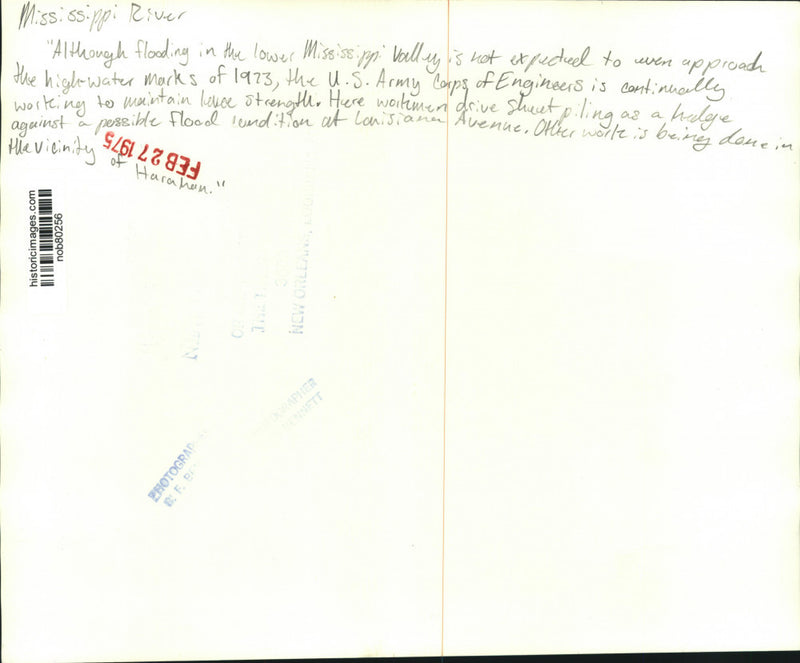 Mississippi River
"Although flooding in the lower Mississippi Valley is not expected to even approach
the high water marks of 1973, the U.S. Army Corps of Engineers is continually
working to maintain levee strength. Here workmen drive sheet piling as a hedge
against a possible flood condition at Louisiana Avenue. Other work is being done in
the vicinity of Harahan."
FEB 27 1975
historicimages.com
nob80256
NEW ORLEANS,
PHOTOGRAP